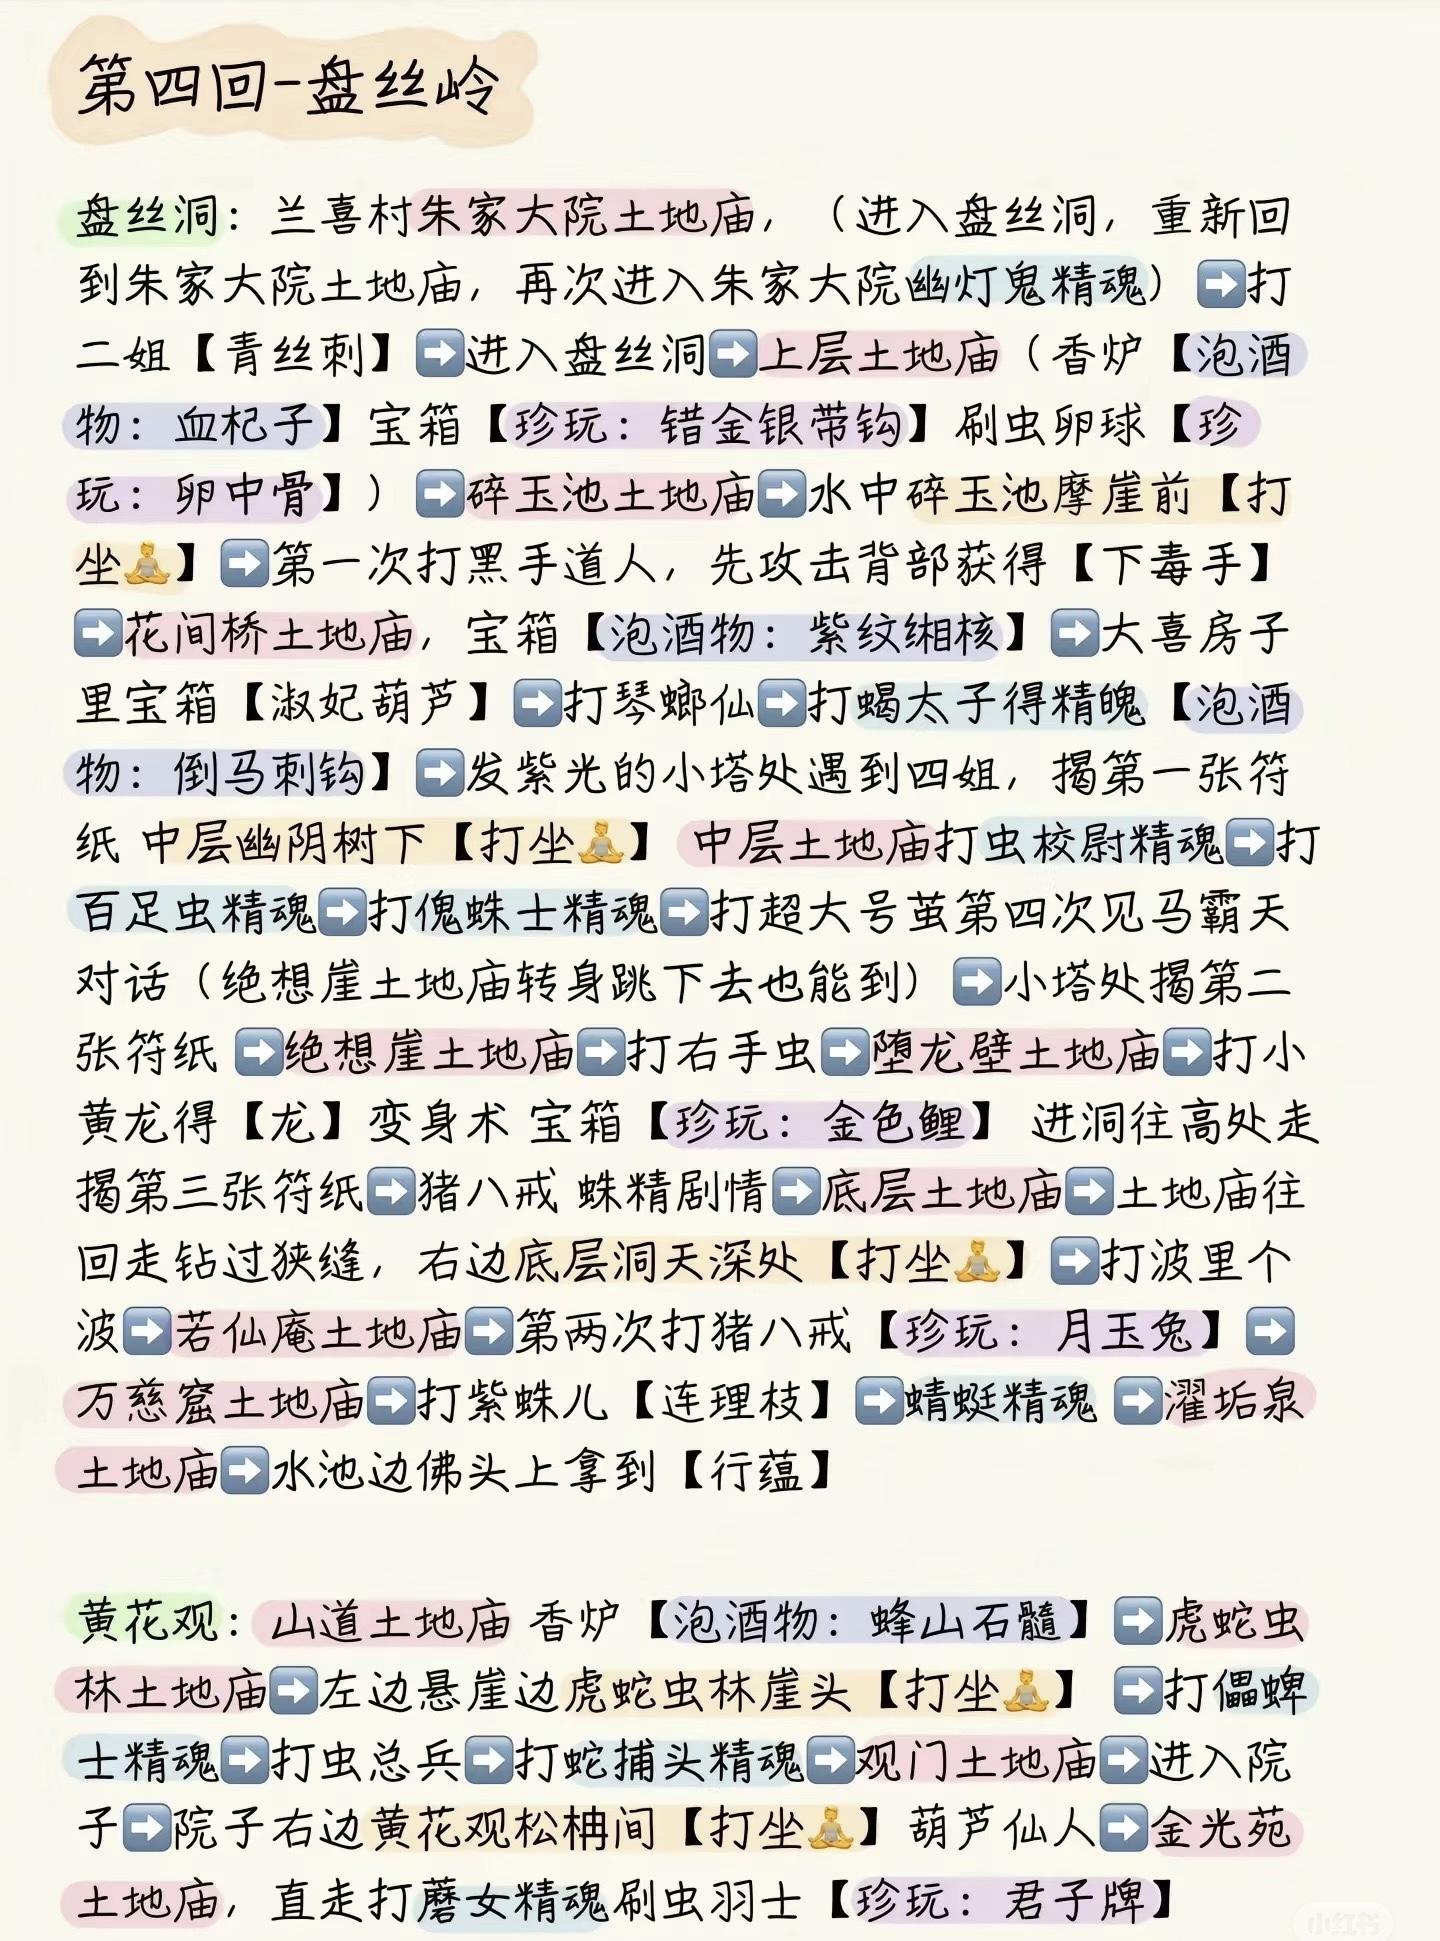 第四回-盘丝岭
盘丝洞：兰喜村朱家大院土地庙，（进入盘丝洞，重新回
到朱家大院土地庙，再次进入朱家大院幽灯鬼精魂）➡️打
二姐【青丝刺】➡️进入盘丝洞➡️上层土地庙（香炉【泡酒
物：血杞子】宝箱【珍玩：错金银带钩】刷虫卵球【珍
玩：卵中骨】）➡️碎玉池土地庙➡️水中碎玉池摩崖前【打
坐🧘】➡️第一次打黑手道人，先攻击背部获得【下毒手】
➡️花间桥土地庙，宝箱【泡酒物：紫纹缃核】➡️大喜房子
里宝箱【淑妃葫芦】➡️打琴螂仙➡️打蝎太子得精魄【泡酒
物：倒马刺钩】➡️发紫光的小塔处遇到四姐，揭第一张符
纸 中层幽阴树下【打坐🧘】 中层土地庙打虫校尉精魂➡️打
百足虫精魂➡️打傀蛛士精魂➡️打超大号茧第四次见马霸天
对话（绝想崖土地庙转身跳下去也能到）➡️小塔处揭第二
张符纸 ➡️绝想崖土地庙➡️打右手虫➡️堕龙壁土地庙➡️打小
黄龙得【龙】变身术 宝箱【珍玩：金色鲤】 进洞往高处走
揭第三张符纸➡️猪八戒 蛛精剧情➡️底层土地庙➡️土地庙往
回走钻过狭缝，右边底层洞天深处【打坐🧘】➡️打波里个
波➡️若仙庵土地庙➡️第两次打猪八戒【珍玩：月玉兔】➡️
万慈窟土地庙➡️打紫蛛儿【连理枝】➡️蜻蜓精魂 ➡️濯垢泉
土地庙➡️水池边佛头上拿到【行蕴】
黄花观：山道土地庙 香炉【泡酒物：蜂山石髓】➡️虎蛇虫
林土地庙➡️左边悬崖边虎蛇虫林崖头【打坐🧘】 ➡️打儡蜱
士精魂➡️打虫总兵➡️打蛇捕头精魂➡️观门土地庙➡️进入院
子➡️院子右边黄花观松柟间【打坐🧘】葫芦仙人➡️金光苑
土地庙，直走打蘑女精魂刷虫羽士【珍玩：君子牌】
小红书